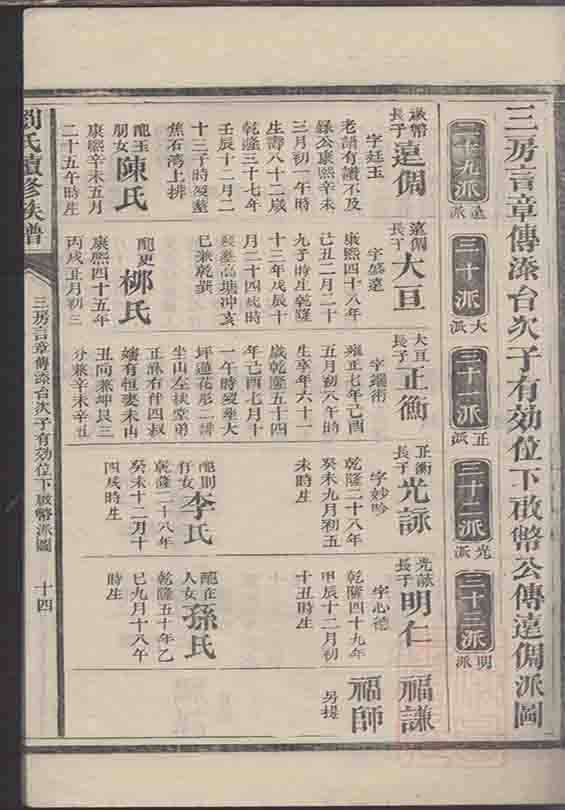 三房言章傳添台次子有効位下啟幣公傳遠倜派圖
二十九派
遠派
三十派
大派
三十一派
正派
三十二派
光派
三十三派
明派
啟幣
長子
遠倜
字廷玉
老譜有讚不及
錄公康熙辛未
三月初一午時
生壽八十二歲
乾隆三十七年
壬辰十二月二
十三子時歿塟
焦石湾上排
配玉
朋女
陳氏
康熙辛未五月
二十五午時生
遠倜
長子
大亘
字盛遠
康熙四十八年
己丑二月二十
九子時生乾隆
十三年戊辰十
月二十四戌時
歿塟高塘冲亥
巳兼乾巽
柳氏
康熙四十五年
丙戌正月初三
大亘
長子
正衡
字瑞術
雍正七年己酉
五月初八午時
生享年六十一
歲乾隆五十四
年己酉七月十
一午時歿塟大
坪蓮花形二譜
坐山左扶堂弟
正淋右伴四叔
嬸有恒妻未山
丑向兼坤艮三
分兼辛未辛丑
正衡
長子
光詠
字妙吟
乾隆二十八年
癸未九月初五
未時生
配則
仔女
李氏
乾隆二十八年
癸未十二月十
四戌時生
光詠
長子
明仁
字心德
乾隆四十九年
甲辰十二月初
十丑時生
配在
人女
孫氏
乾隆五十年乙
巳九月十八午
時生
福謙
福師
另提
劉氏續修族譜
三房言章傳添台次子有効位下啟幣派圖
十四